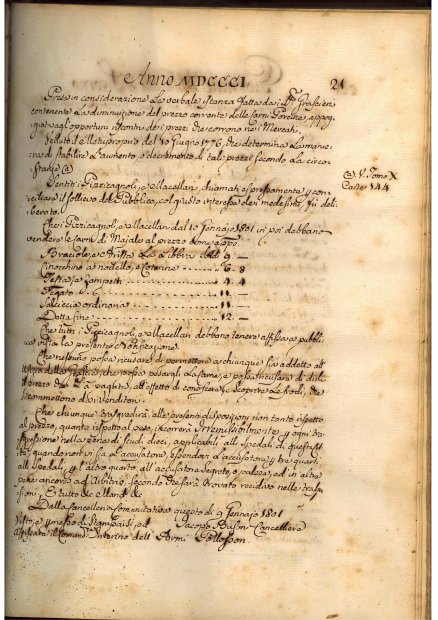 Anno MDCCCI
21
Presa in considerazione la verbale istanza fatta dai
contenente la diminuzione del prezzo corrente delle Carni Porcine, appog
giata agl'opportuni riscontri dei prezzi che corrono nei Mercati.
Veduto il Motuproprio del 10 Giugno 1776, che determina la manie
ra di stabilire l'aumento, o decremento di tali prezzi secondo la circo
stanze (a)
(a) V. Tomo X
Carte 144
Sentiti i Pizzicagnoli, e Macellari chiamati espressamente p con
ciliare il sollievo del Pubblico, col giusto interesse dei medesimi, fù deli
berato.
Che i Pizzicagnoli, e Macellari dal 10 Gennajo 1801 in poi debbano
vendere le carni di Majale al prezzo come app.o
Braciole, e Arista La Libbra Soldi 9 —
Zinocchino a rodello, e Cotenne 6. 8
Testa, e Zampetti 4. 4
Fegato 11 —
Salciccia ordinaria 11 —
Detta fine 12 —
Che tutti i Pizzicagnoli, e Macellari debbano tenere affissa a pubbli
ca vista la presente Notificazione.
Che nessuno possa ricusare di permettere a chiunque sia addetto al
che possa pesarsi la carne, e possa ricusare di dirle
il prezzo che l'à pagata, all'effetto di conoscere, e scoprire le frodi, che
si commettono dai Venditori.
Che chiunque trasgredirà alle presenti disposizioni non tanto rispetto
al prezzo, quanto rispetto al peso, incorrerà irremissibilmente p ogni tra
sgressione nella pena di Scudi dieci, applicabili alli Spedali di questa Cit
tà, quando non vi sia l'accusatore, essendovi l'accusatore p tre quarti
alli Spedali, e p l'altro quarto all'accusatore segreto, o palese, ed in altre
pene ancora ad Arbitrio secondo che sarà trovato recidivo nelle trasgres
sioni, E tutto
Dalla Cancelleria Comunitativa questo dì 9 Gennajo 1801
Visto, e p.messo di Stamparsi, ed Jacopo Busini Cancelliere
Affissato il Comando Interino dell' Armi